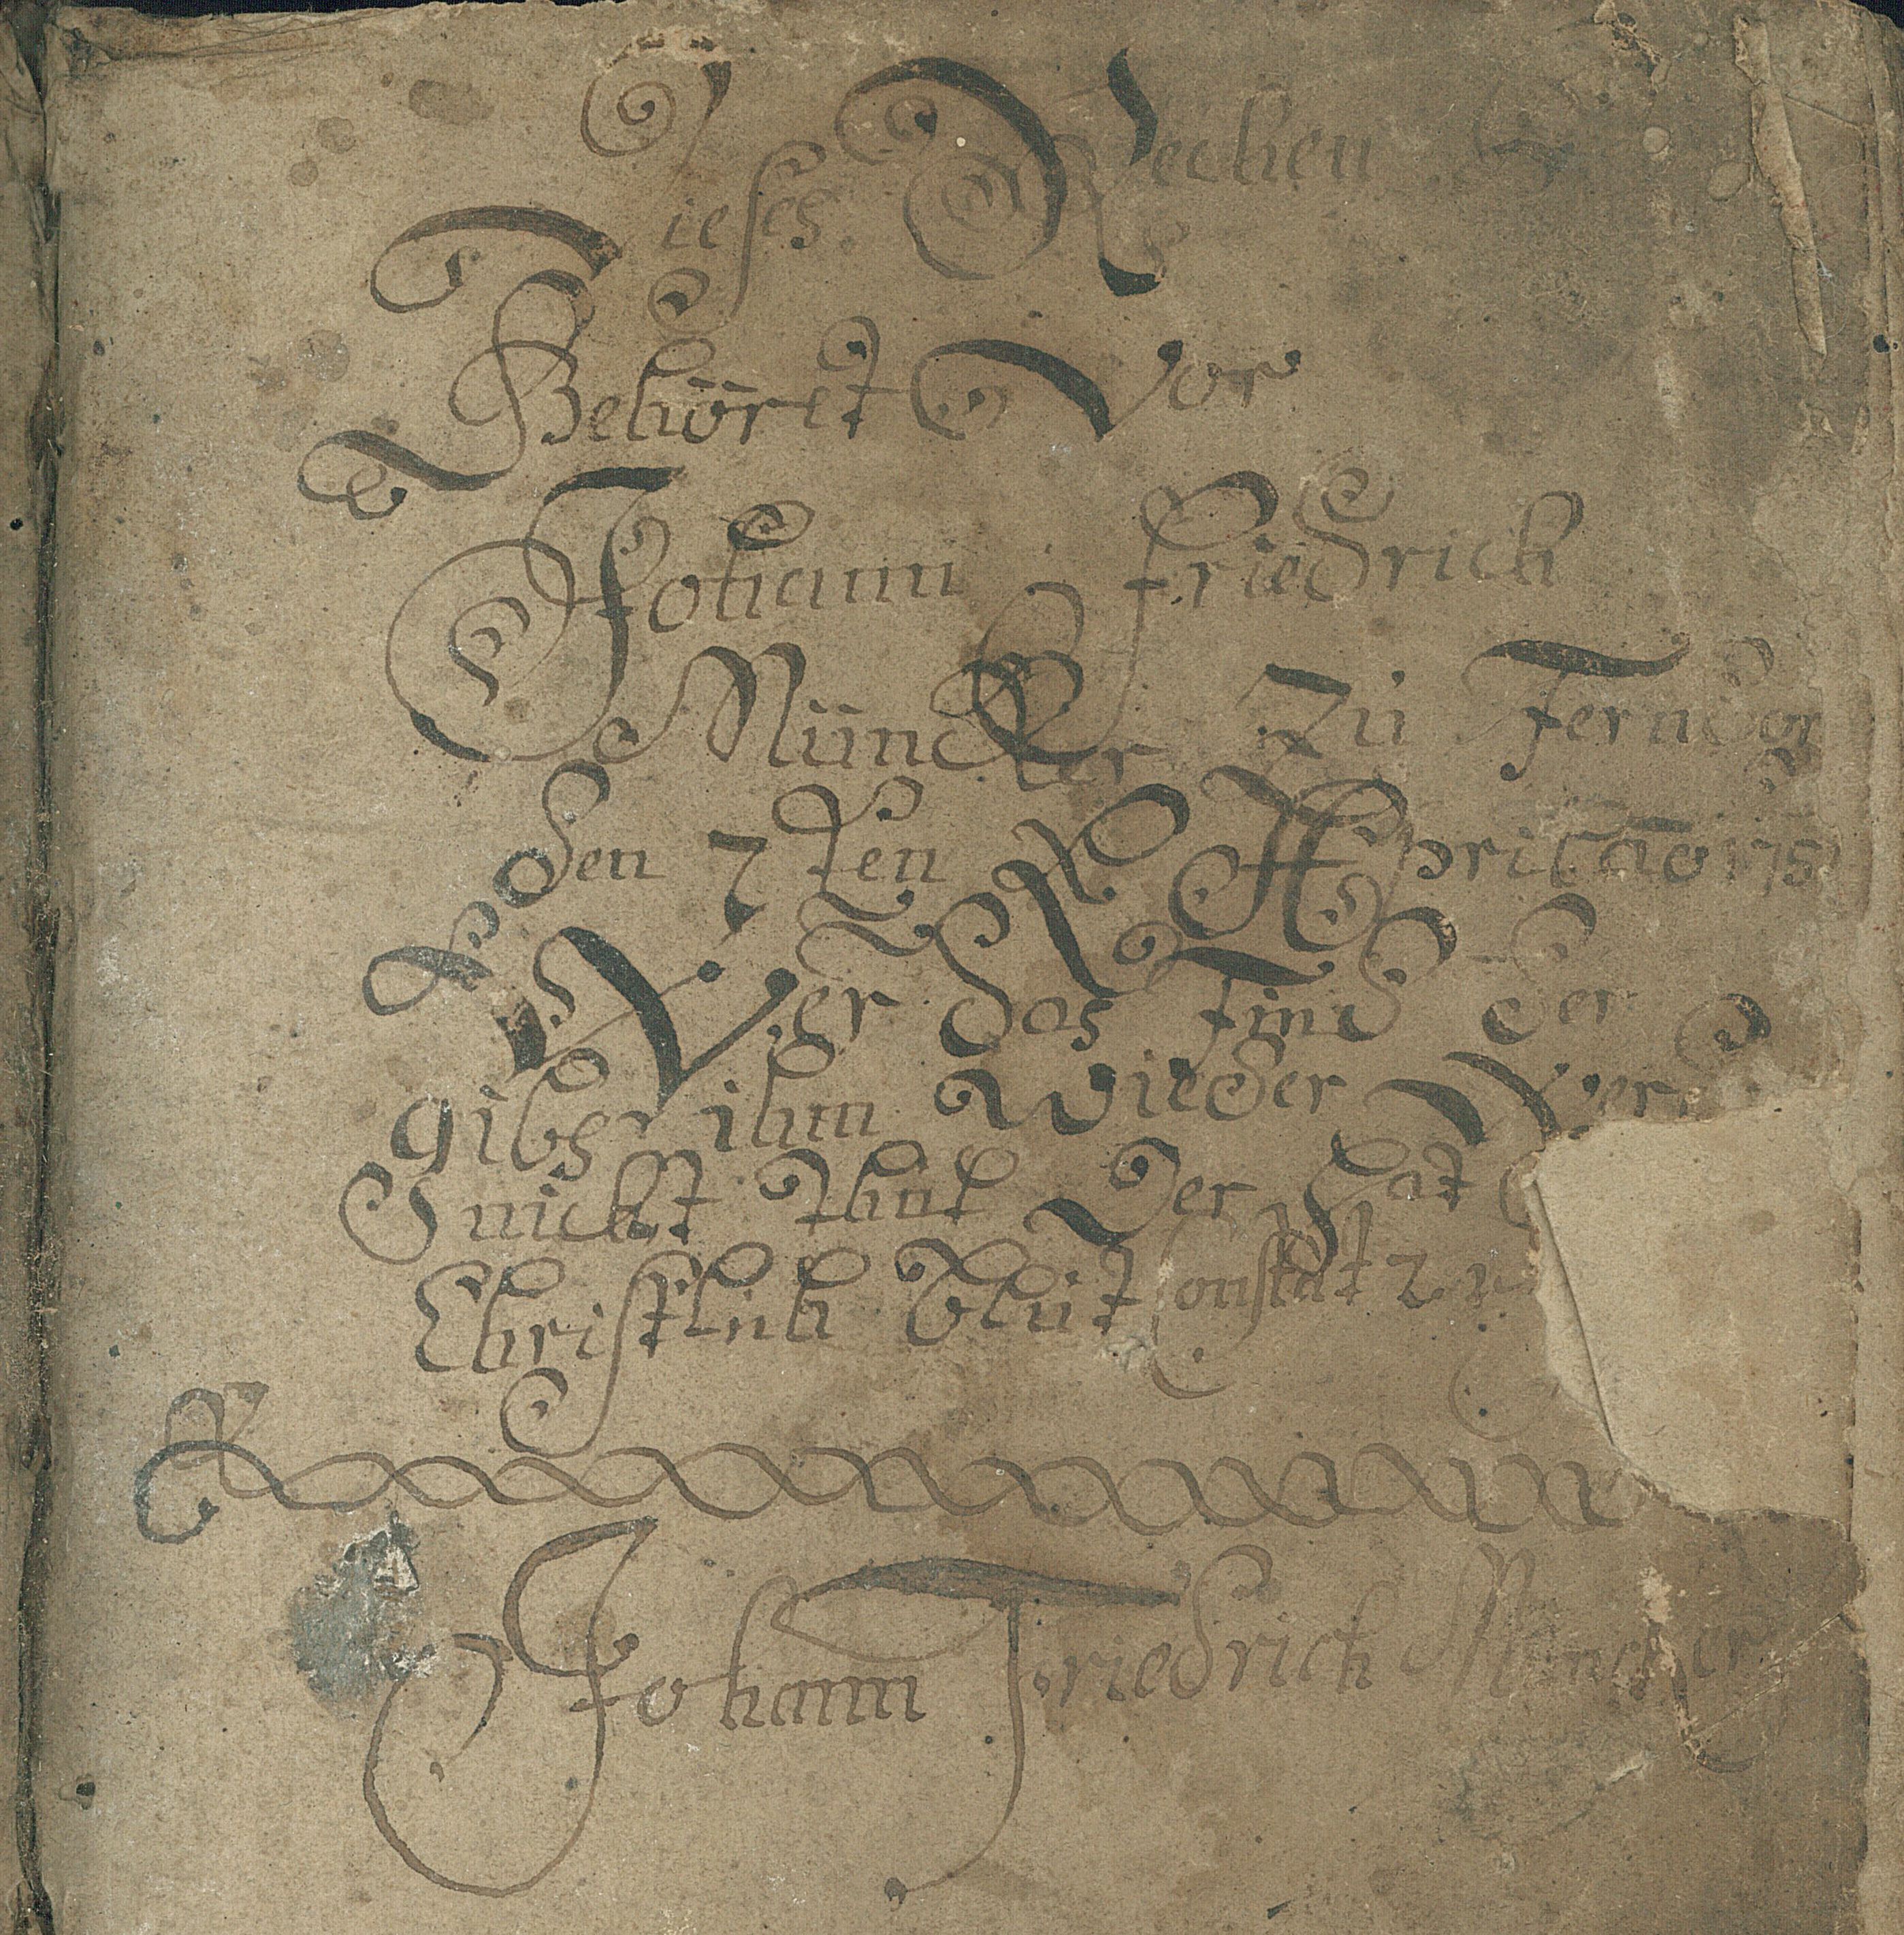 Dieses Rechen
Behöret Vor
Johann Friedrich
Müncker Zu Ferndor
Den 7 ten April ao 175
Wer das find der
gibs ihm wieder Wer
nicht Thut Der Hat
Christlich Blut Constat 2
Johann Friedrich Müncker